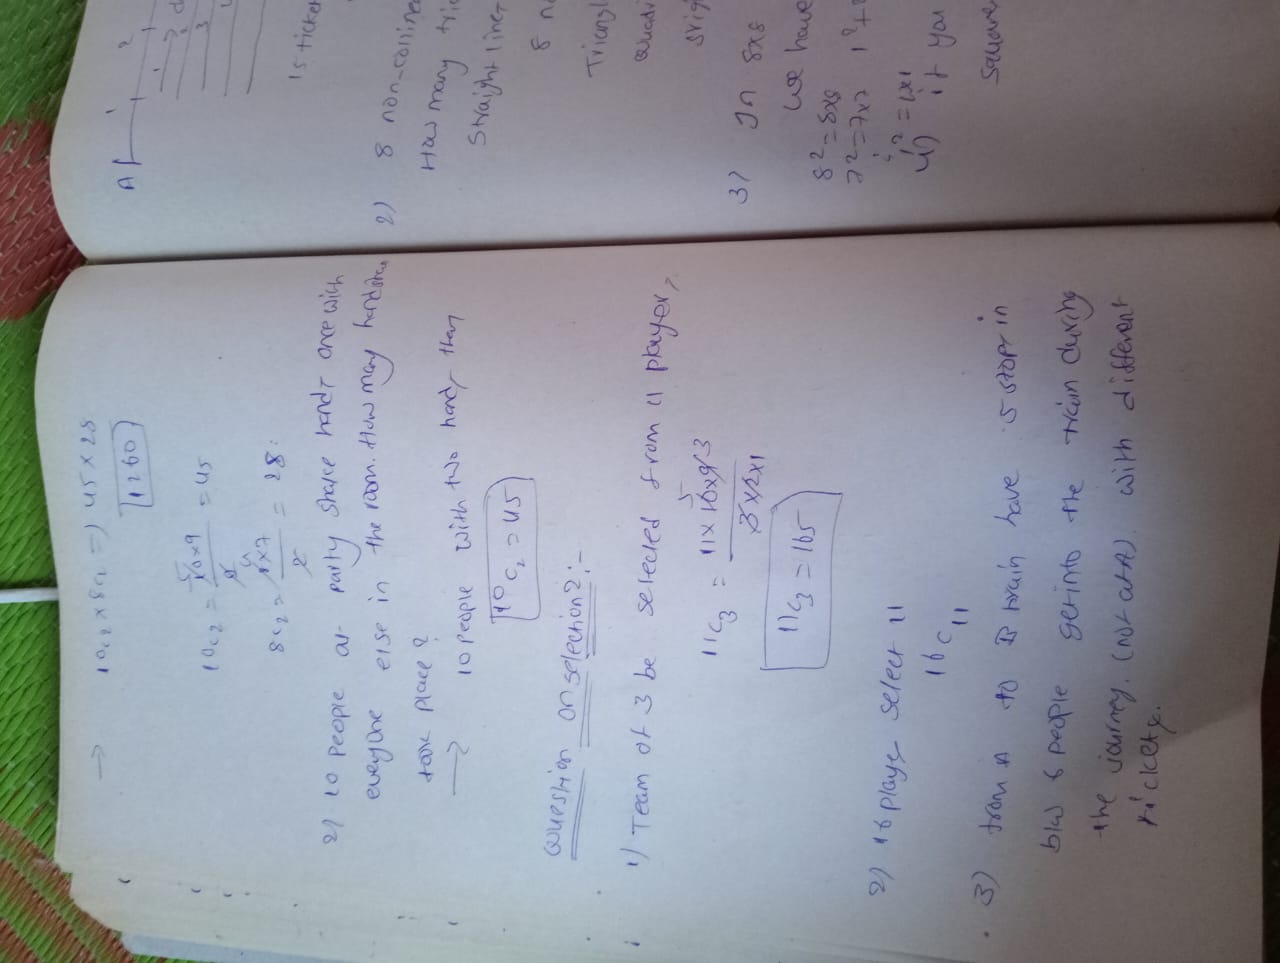 → 10c2 x 8c2 => 45 x 28
1260
10c2 = 10x9 / 2 = 45
8c2 = 8x7 / 2 = 28.
2) 10 people at party shake hands once with
everyone else in the room. How many
took place?
→ 10 people with two hands then
10c2 = 45
Question on selection:-
1) Team of 3 be selected from 11 player,
11c3 = 11x10x9 3 / 3x2x1
11c3 = 165
2) 16 player select 11
16c11
3) from A to B train have 5 stops in
b/w 8 people get into the train during
the journey. (not at A) with different
tickets.
A
1 2
15 ticket
2) 8 non-colline
How many tri
Straight line,
8
Triangl
3) In 8x8
we have
8² = 8x8
7² = 7x7 1² +
1² = 1x1
4) if you
Square